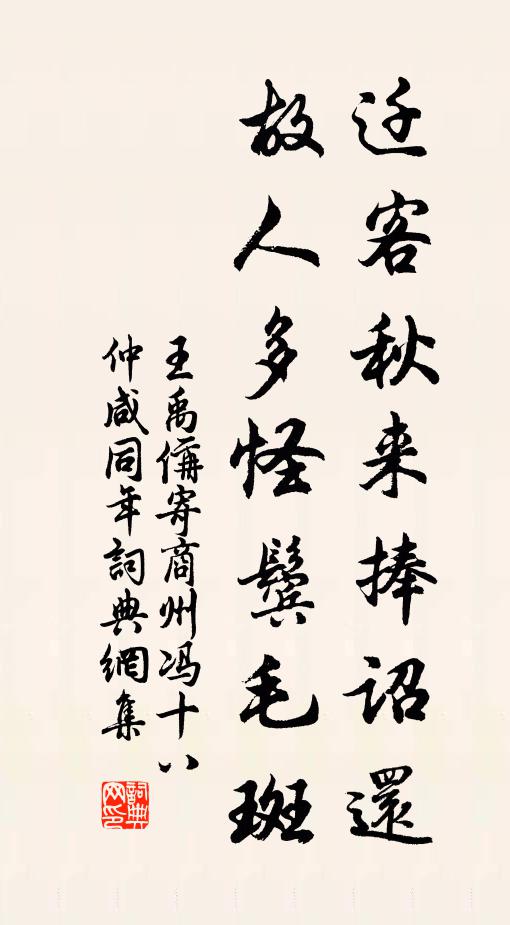 迁客秋来捧诏還
故人多怪鬓毛斑
王禹偁寄商州冯十八
仲咸同年詞典網集
詞典
网印